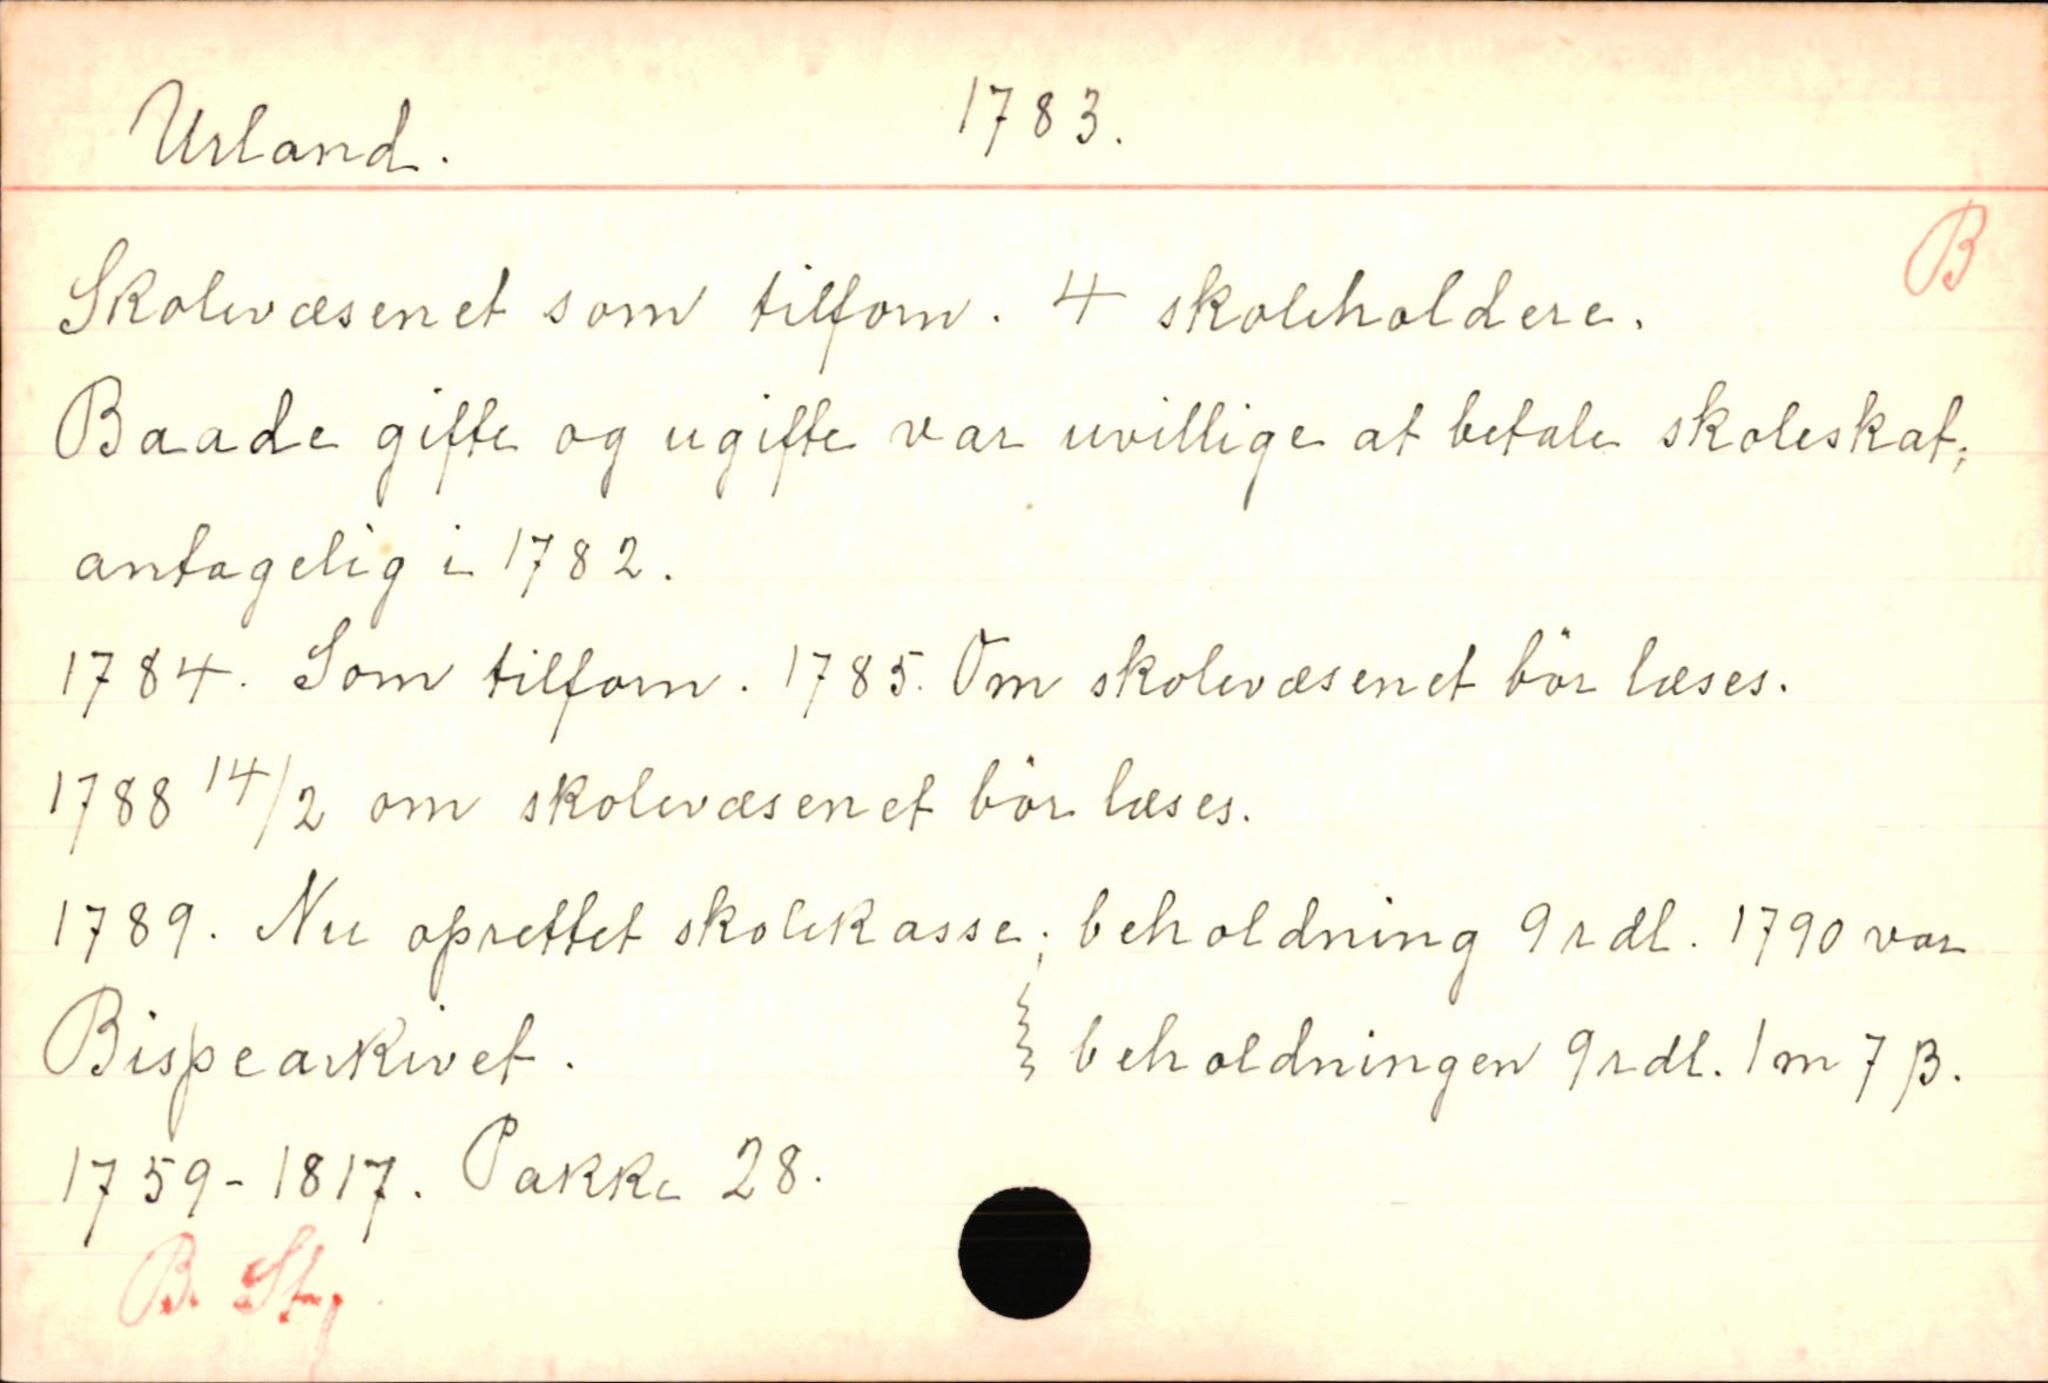 Urland. 1783.
B
Skolevæsenet som tilforn. 4 skoleholdere.
Baade gifte og ugifte var uvillige at betale skoleskat;
antagelig i 1782.
1784. Som tilforn. 1785. Om skolevæsenet bör læses.
1788 14/2 om skolevæsenet bör læses.
1789. Nu oprettet skolekasse; beholdning 9 rdl. 1790 var
beholdningen 9 rdl. 1 m 7 β.
Bispearkivet.
1759-1817. Pakke 28.
B. St,